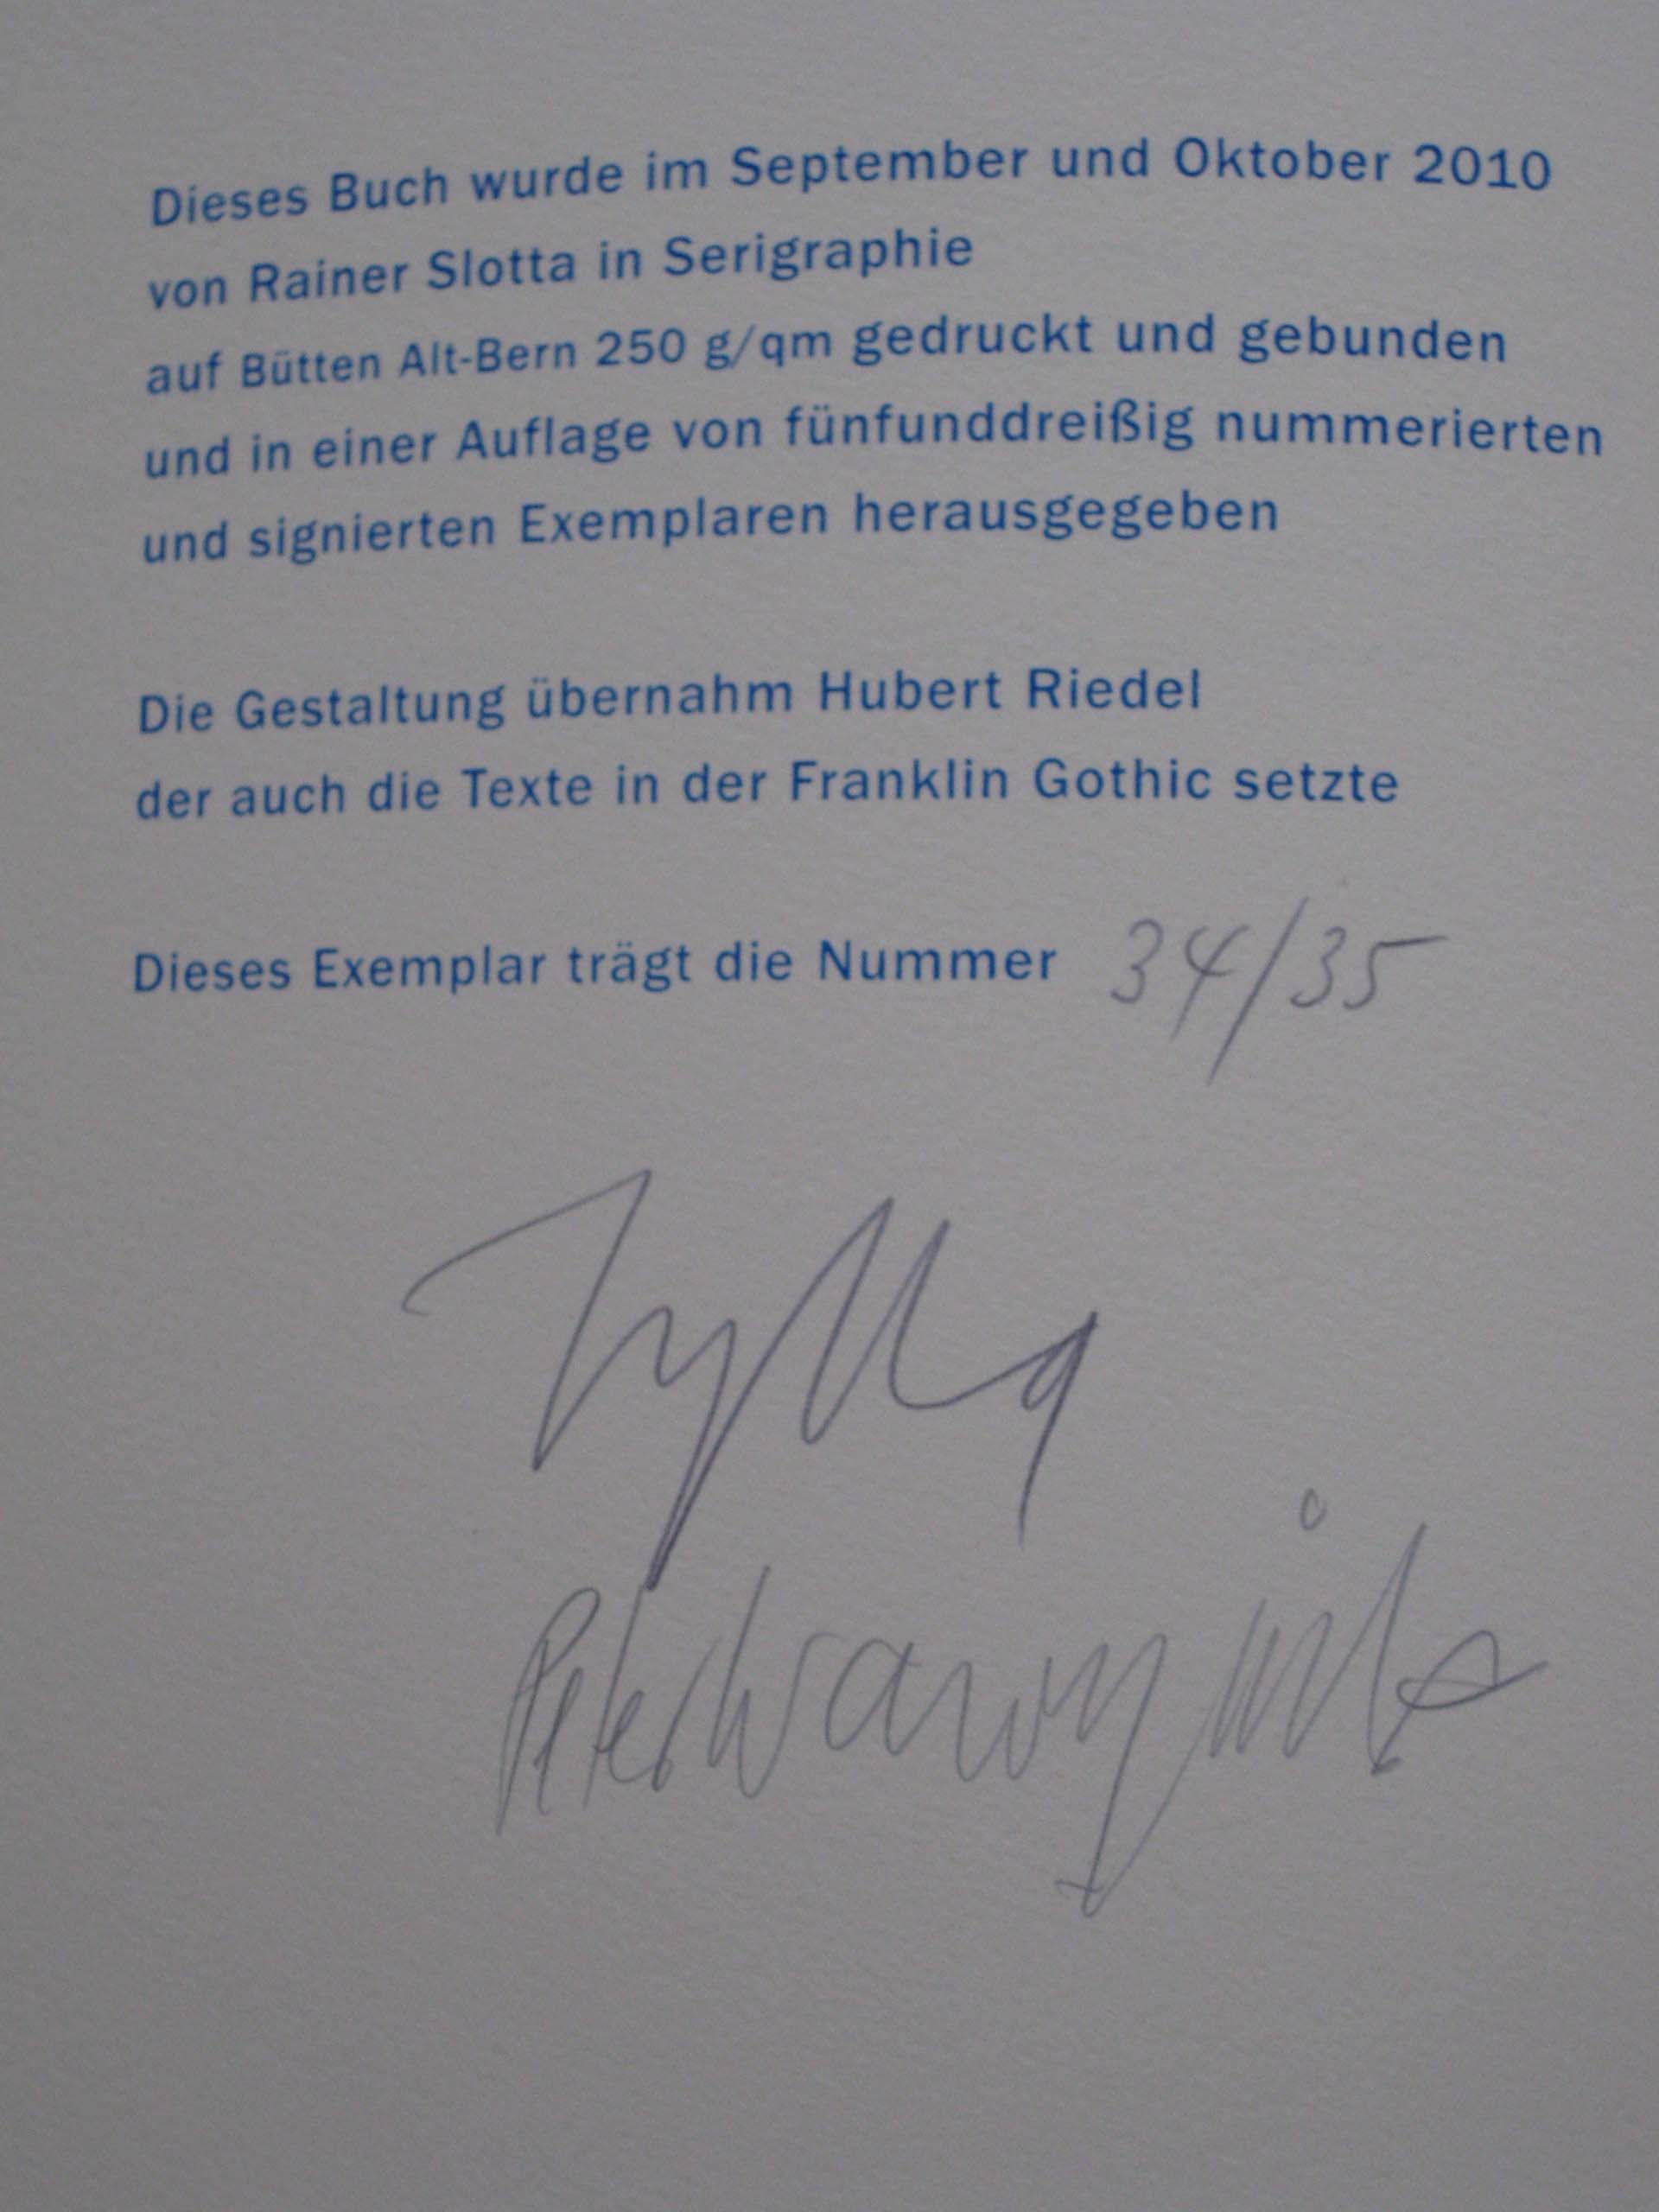 Dieses Buch wurde im September und Oktober 2010
von Rainer Slotta in Serigraphie
auf Bütten Alt-Bern 250 g/qm gedruckt und gebunden
und in einer Auflage von fünfunddreißig nummerierten
und signierten Exemplaren herausgegeben
Die Gestaltung übernahm Hubert Riedel
der auch die Texte in der Franklin Gothic setzte
Dieses Exemplar trägt die Nummer 34/35
Zylla
Peter Wawerzinek